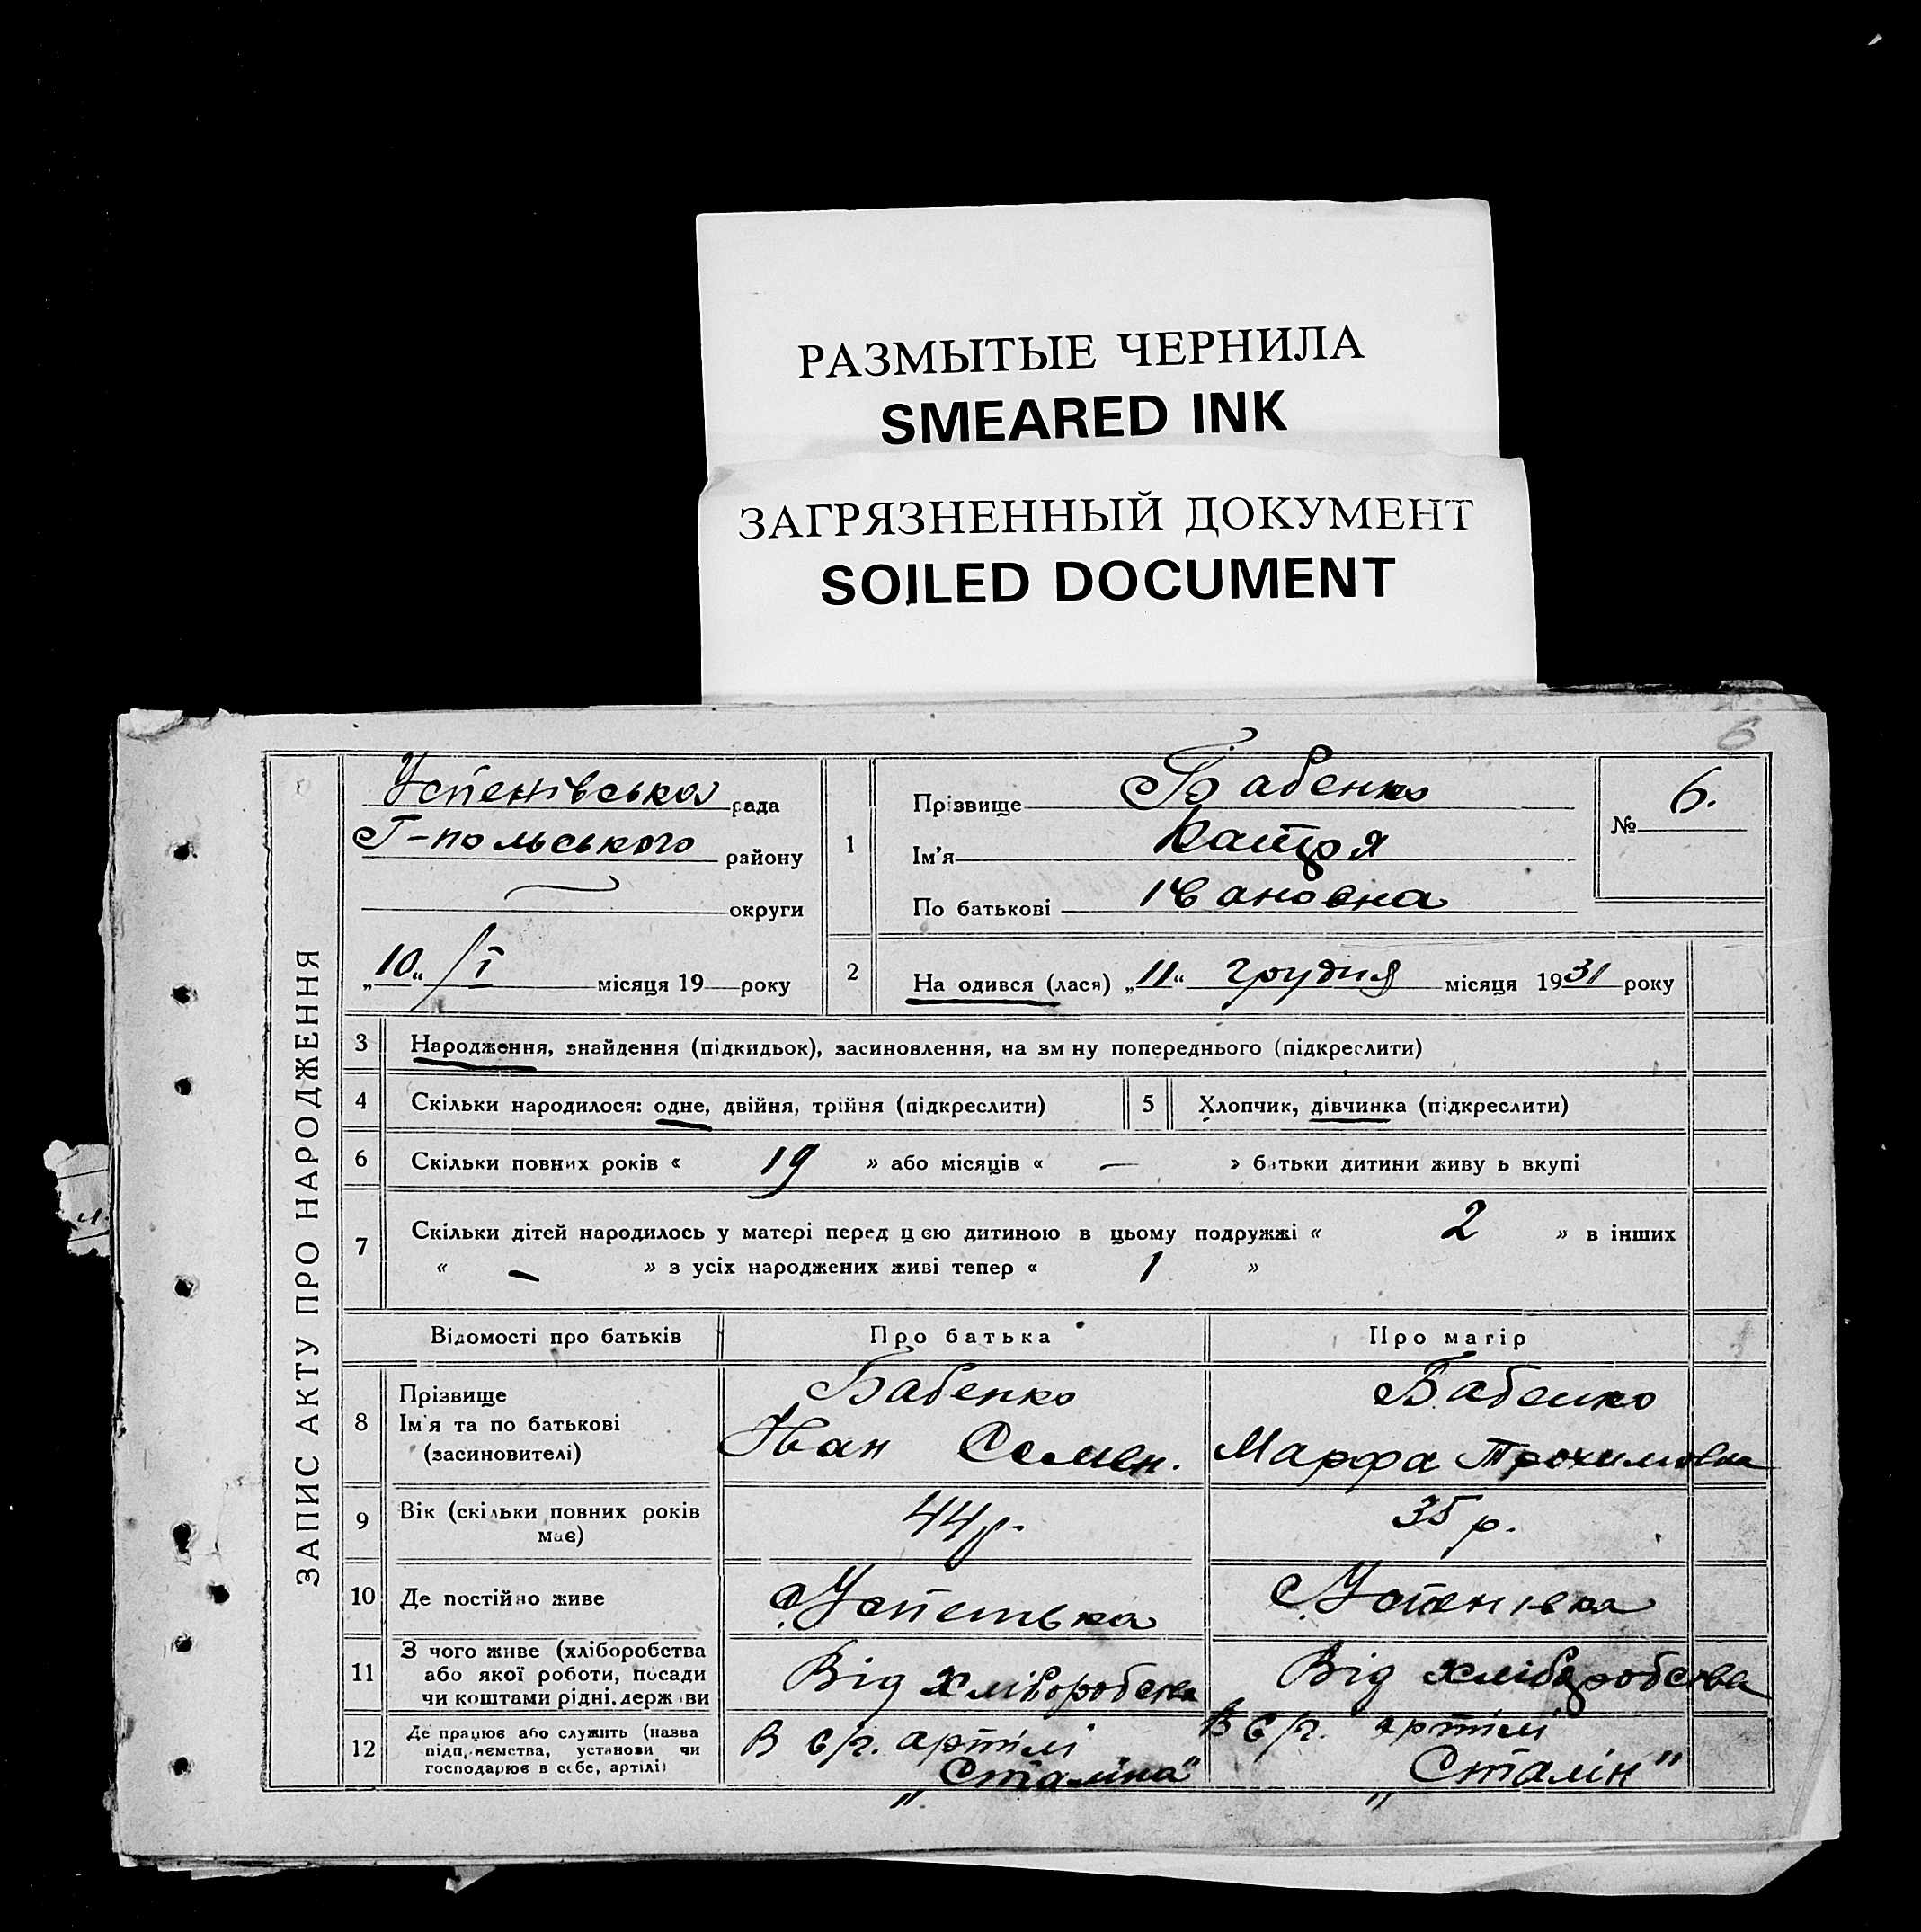 РАЗМЫТЫЕ ЧЕРНИЛА
SMEARED INK
ЗАГРЯЗНЕННЫЙ ДОКУМЕНТ
SOILED DOCUMENT
6
ЗАПИС АКТУ ПРО НАРОДЖЕННЯ
Успенівська рада
Г-польського району
округи
„10“ /I місяця 19 року
1
Прізвище Бабенко
Ім'я Катря
По батькові Івановна
№ 6.
2 На одився (лася) „11“ грудня місяця 1931 року
3 Народження, знайдення (підкидьок), засиновлення, на зм ну попереднього (підкреслити)
4 Скільки народилося: одне, двійня, трійня (підкреслити) 5 Хлопчик, дівчинка (підкреслити)
6 Скільки повних років « 19 » або місяців « — » батьки дитини живу ь вкупі
7 Скільки дітей народилось у матері перед цією дитиною в цьому подружжі « 2 » в інших
« — » з усіх народжених живі тепер « 1 »
Відомості про батьків Про батька Про матір
8 Прізвище
Ім'я та по батькові
(засиновителі)
Бабенко
Іван Семен.
Бабенко
Марфа Трохимовна
9 Вік (скільки повних років
має)
44 р.
35 р.
10 Де постійно живе
с. Успенівка
с. Успенівка
11 З чого живе (хліборобства
або якої роботи, посади
чи коштами рідні, держ ви
Від хліборобства
Від хліборобства
12 Де працює або служить (назва
підп, иємства, установи чи
господарює в себе, артілі)
В с/г. артілі
„Сталіна"
В с/г. артілі
„Сталін"